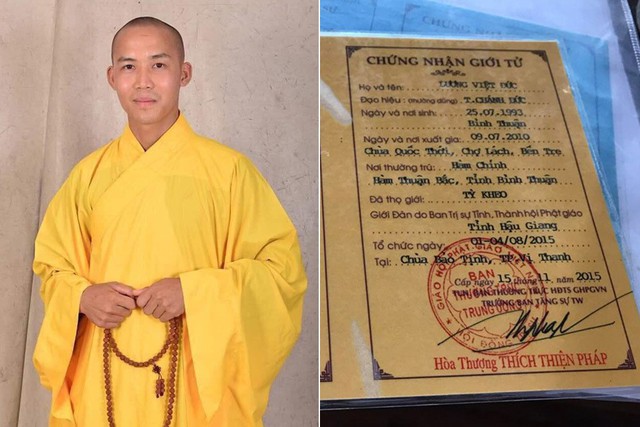 CHỨNG NHẬN
CHỨNG NHẬN GIỚI TỬ
Họ và tên: LƯƠNG VIỆT ĐỨC
Đạo hiệu : (thường dùng) T.CHÁNH ĐỨC
Ngày và nơi sinh: 25.07.1993
Bình Thuận
Ngày và nơi xuất gia: 09.07.2010
Chùa Quốc Thới, Chợ Lách, Bến Tre
Nơi thường trú: Hàm Chính
Hàm Thuận Bắc, Tỉnh Bình Thuận
Đã thọ giới: TỲ KHEO
Giới Đàn do Ban Trị sự Tỉnh, Thành hội Phật giáo
Tỉnh Hậu Giang
Tổ chức ngày: 01-04/08/2015
Tại: Chùa Bảo Tịnh, TP.Vị Thanh
Cấp ngày 15 tháng 11 năm 2015
TUN BAN THƯỜNG TRỰC HĐTS GHPGVN
TRƯỞNG BAN TĂNG SỰ TW
GIÁO HỘI PHẬT GIÁO
BAN
TRUNG ƯƠNG
HỘI ĐỒNG
Hòa Thượng THÍCH THIỆN PHÁP